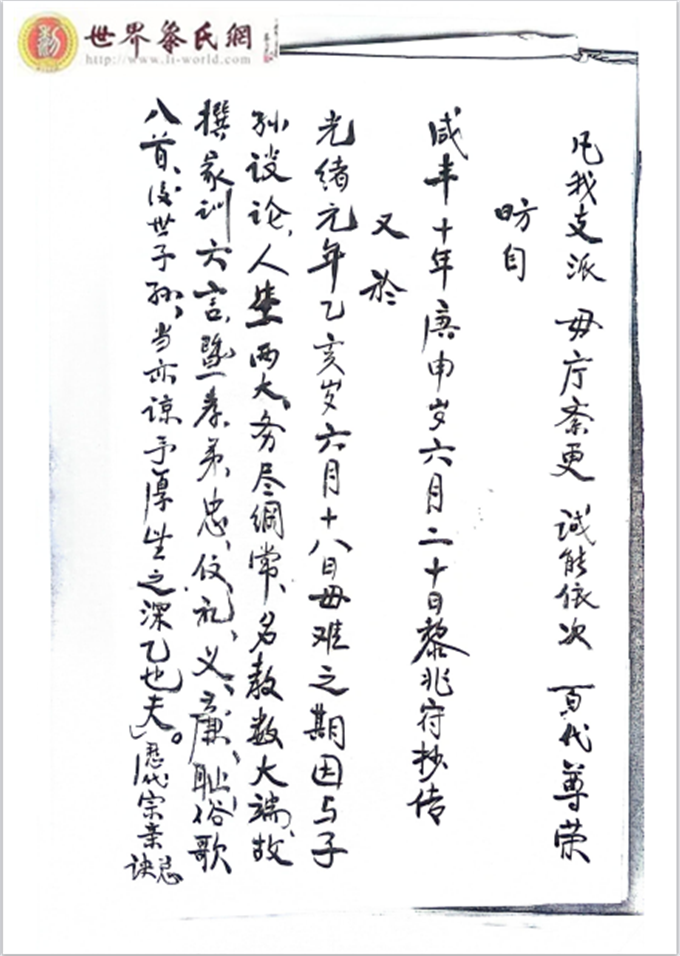 世界黎氏網
http://www.li-world.com
凡我支派 毋庁紊更 诚能依次 百代尊荣
昉自
咸丰十年庚申岁六月二十日黎兆符抄传
又於
光绪元年乙亥岁六月十八日毋难之期因与子
孙谈论、人生两大、务尽纲常、名教数大端、故
撰家训六言、暨孝、弟、忠、信、礼、义、廉、耻、俗歌
八首、后世子孙、当亦谅予厚生之深乙也夫。
历代宗亲总
诀